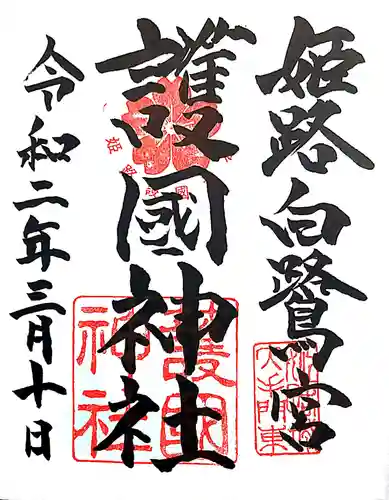 姫路白鷺宮
護國神社
令和二年三月十日
護國
神社
大手門東